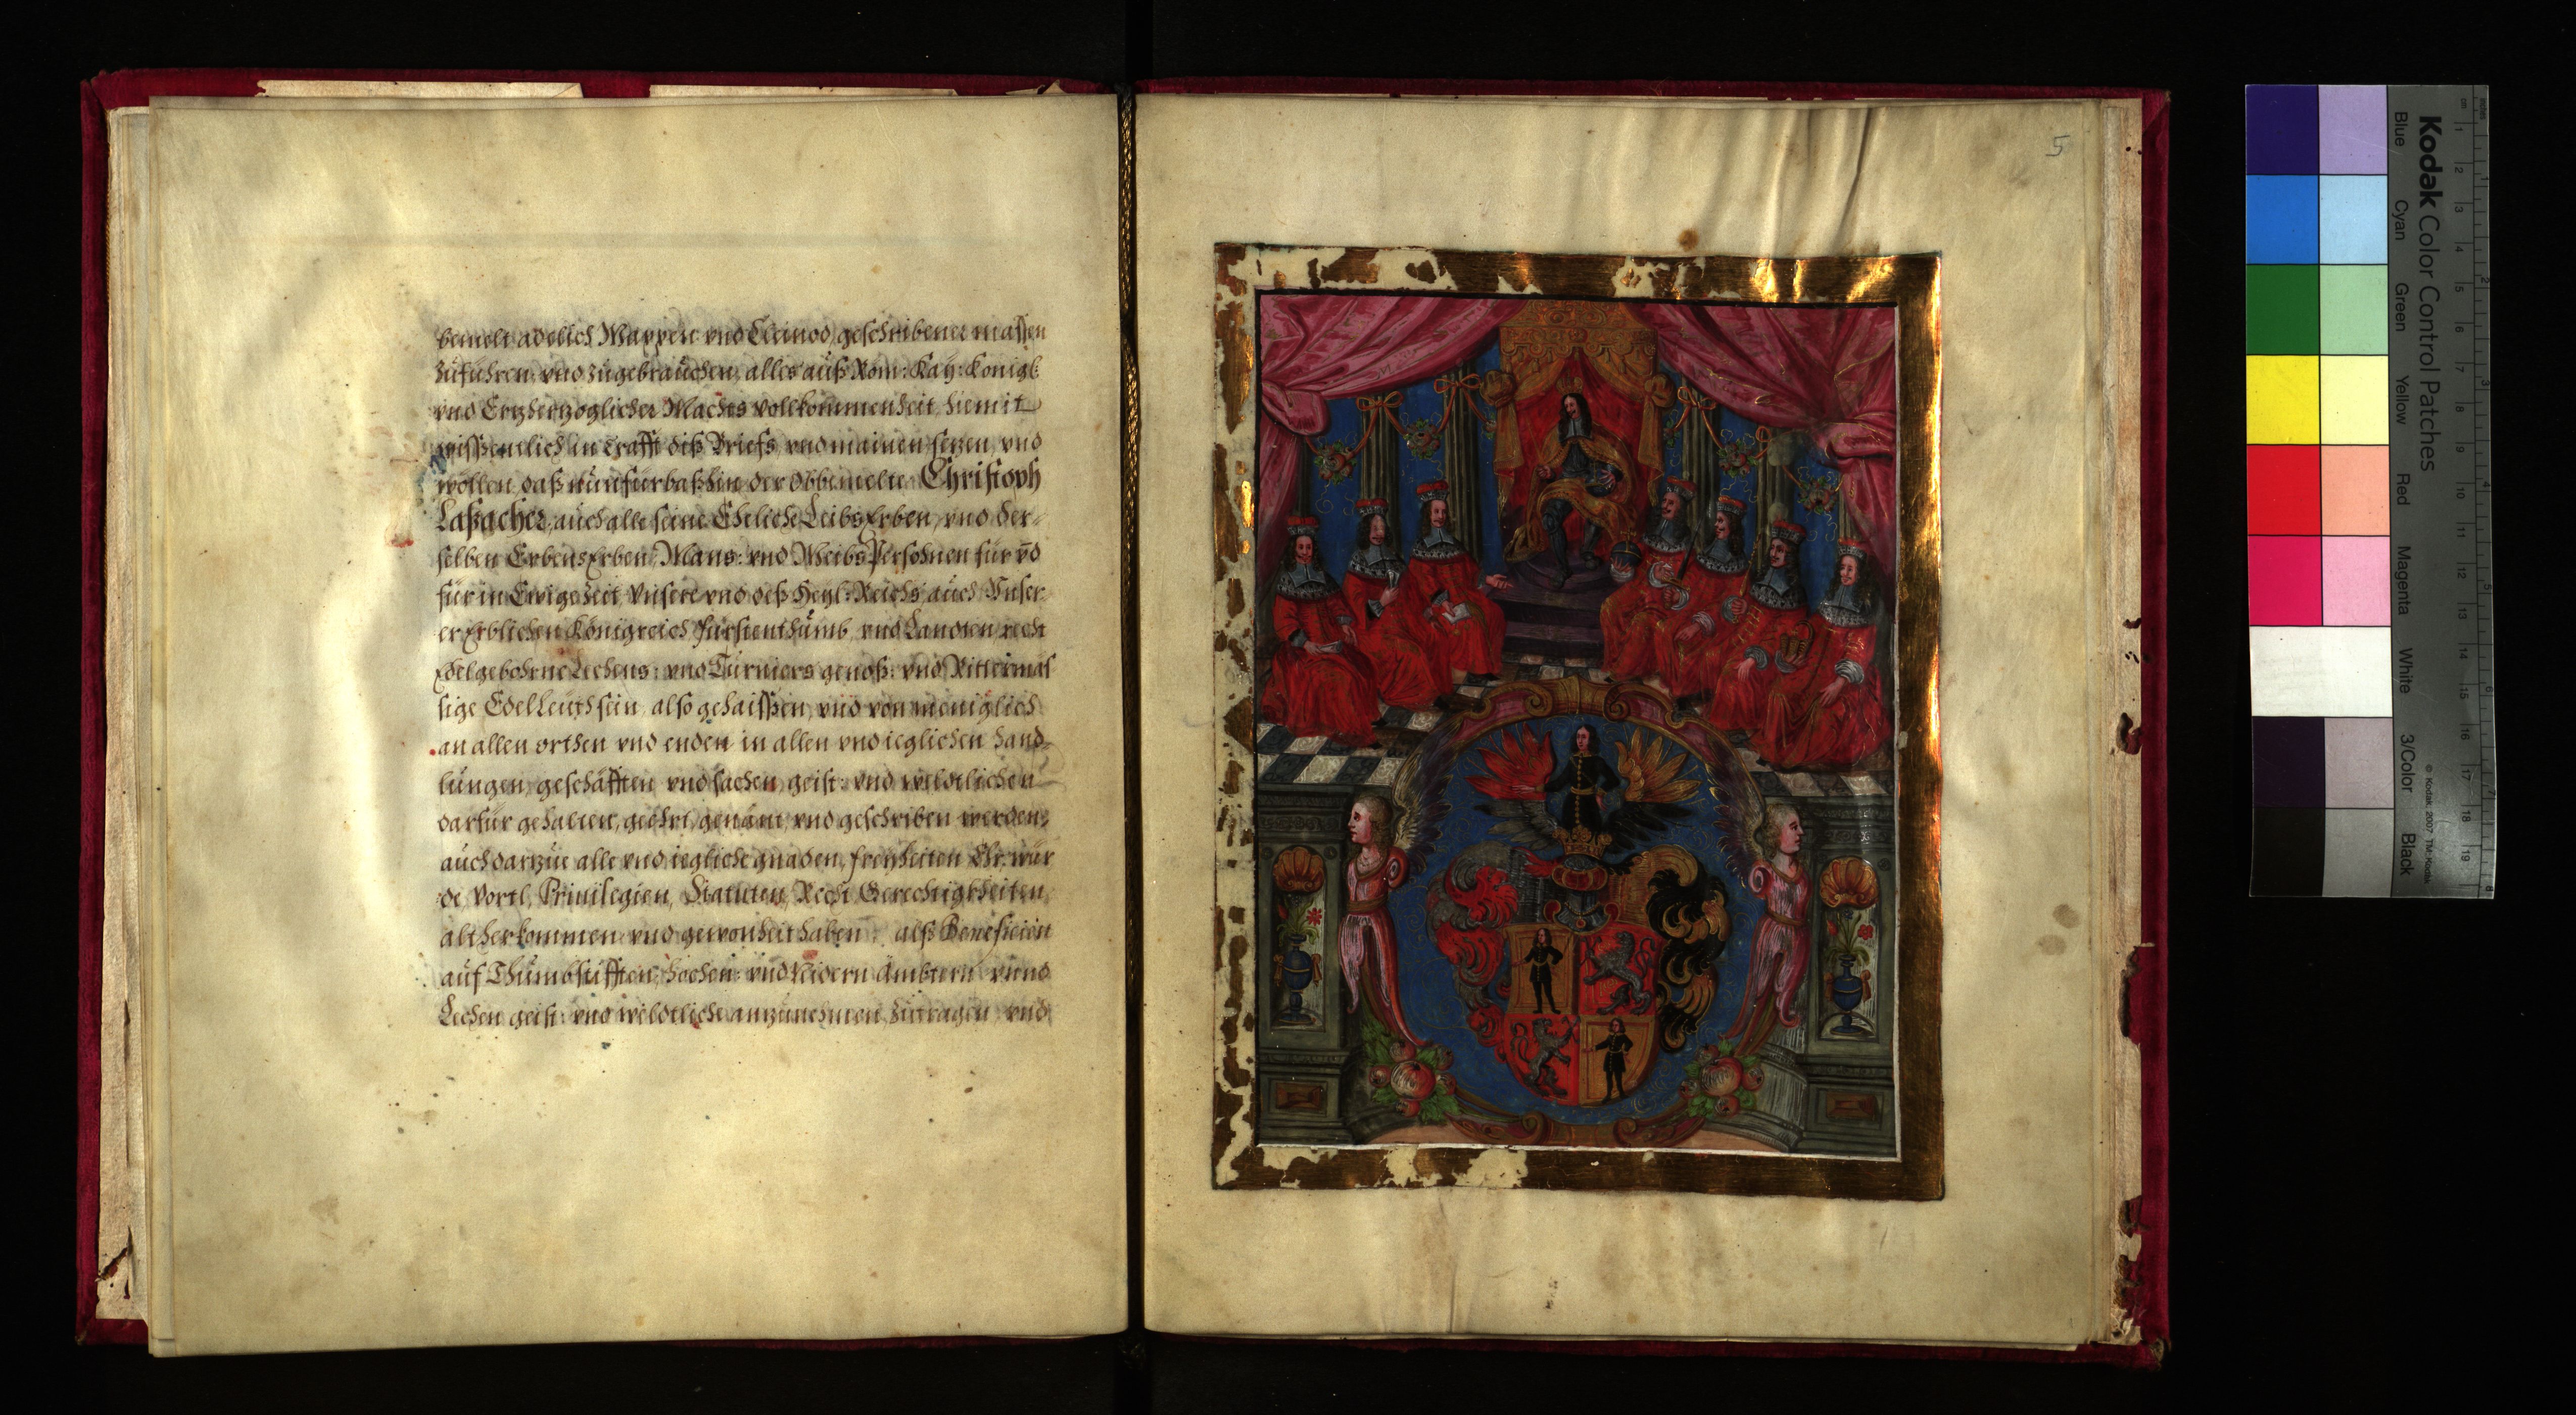 bemelt adelich Wappen vnd Cleinod, geschribener massen
zuführen, vnd zugebrauchen, alles auß Röm: Kaÿ: Königl:
vnd Ertzhertzoglicher Machts vollkommenheit, hiemit
wissentlich in Crafft diß Briefs, vnd mainen, sezen, vnd
wöllen, daß nun fürbaßhin der Obbemelte Christoph
Laßacher, auch alle seine Eheliche LeibsErben, vnd der-
selben ErbensErben, Mans: vnd WeibsPersohnen für vnd
für in Ewigs zeit, Vnsere vnd deß Heyl: Reichs auch Vnser
erErblichen Königreich Fürstenthumb vnd Landten recht
Edelgebohrne Lechens: vnd Turniers genoß: vnd Rittermäs
sige EdelLeuth sein, also gehaissen, vnd von meniglich
an allen orthen vnd enden in allen vnd ieglichen hand-
lungen, geschäfften vnd sachen, geist: vnd weldtlichen
darfür gehalten, geehrt, genant, vnd geschriben werden,
auch darzue alle vnd iegliche gnaden, freyheiten Ehr: wür
de, Vortl, Priuilegien, Statuten, Recht Gerechtigkheiten,
altherkommen vnd gewonheit haben, alß Beneficien
auf Thumbstifften, hochen: vnd Nidern ämbtern vnnd
Lechen geist: vnd weldtliche anzunehmen, zutragen vnd
5
Kodak Color Control Patches
Blue Cyan Green Yellow Red Magenta White 3/Color Black
© Kodak, 2007 TM: Kodak
cm 1 2 3 4 5 6 7 8 9 10 11 12 13 14 15 16 17 18 19
inches 1 2 3 4 5 6 7 8